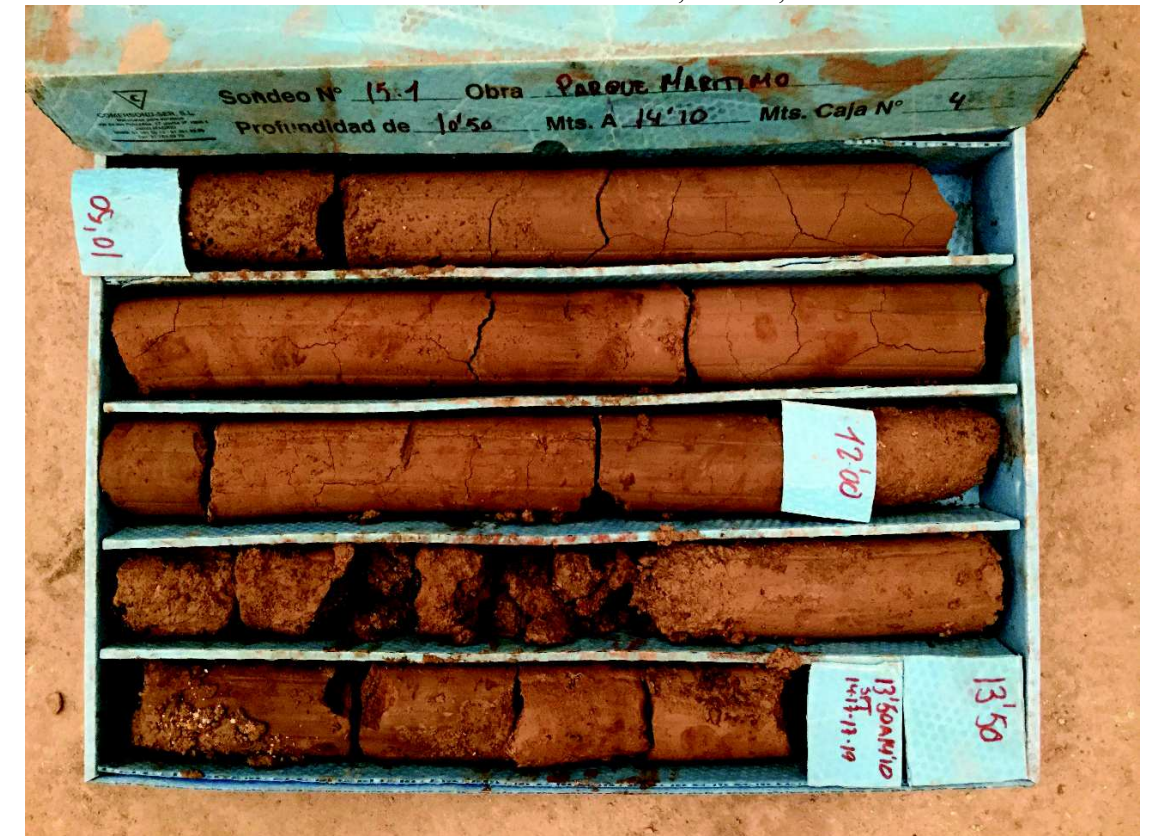 Sondeo Nº 15.1 Obra PARQUE MARITIMO
Profundidad de 10'50 Mts. A 14'10 Mts. Caja Nº 4
10'50
12'00
13'50
SPT
14-17-17-19
13'50